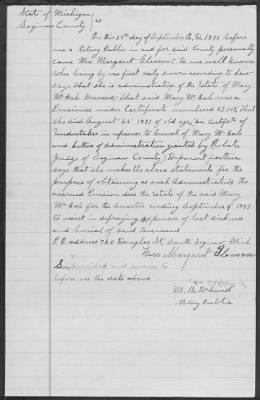 State of Michigan,
Saginaw County ss
On this 28th day of September A, D, 1897. before
me a Notary Public in and for said County personaly
came Mrs. Margaret Gleason. to me well known
who being by me first duly sworn according to law
says that she is administratrix of the Estate of Mary
Mc Hale Deceased - That said Mary Mc Hale was a
Pensioner under Certificate numbered
She died August 25" 1897 of old age, See Certifcate of
Undertaker in referance to burial of Mary Mc Hale
and letters of administration granted by Probate
Judge of Saginaw County, Deponent further
says that she makes the above statements for the
purpose of obtaining as such Administratrix the
accrued Pension due the Estate of the said Mary
Mc Hale for the quarter ending September 4" 1897
to assist in defraying expenses of last sickness
and burial of said deceased
P. O address 720 Douglas St, South Saginaw, Mich
Mrs Margaret Gleason
Subscribed and sworn to
before me the date above
M. B.
Notary Public